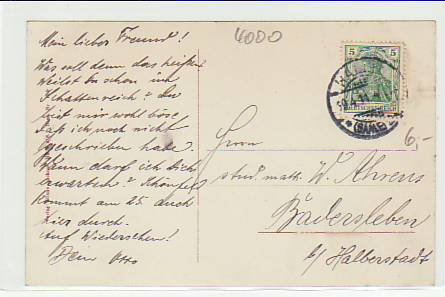 Mein lieber Freund!
Was soll denn das heißen?
Weilst du schon im
Schattenreich? Du
bist mir wohl böse,
daß ich noch nicht
geschrieben habe.
Wann darf ich dich
erwarten?
kommt am 25. auch
hier durch.
Auf Wiedersehen!
Dein Otto
6000
5 5
6,-
Herrn
stud. math. W. Ahrens
Badersleben
b/ Halberstadt